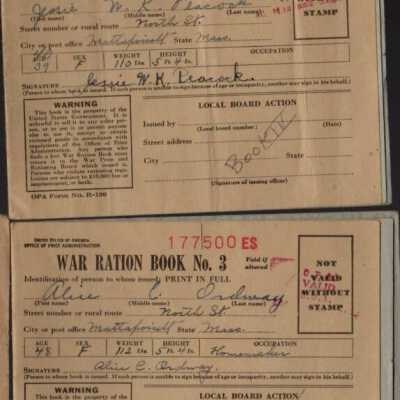 Jessie W. K. Peacock
(Middle name) (Last name)
Street number or rural route North St.
City or post office Mattapoisett State Mass.
SEX WEIGHT HEIGHT OCCUPATION
39 F 110 Lbs. 5 Ft. 4 In.
SIGNATURE Jessie W. K. Peacock.
(Person to whom book is issued. If such person is unable to sign because of age or incapacity, another may sign in his behalf.)
STAMP
WARNING
This book is the property of the
United States Government. It is
unlawful to sell it to any other person,
or to use it or permit anyone
else to use it, except to obtain
rationed goods in accordance with
regulations of the Office of Price
Administration. Any person who
finds a lost War Ration Book must
return it to the War Price and
Rationing Board which issued it.
Persons who violate rationing regulations
are subject to $10,000 fine or
imprisonment, or both.
OPA Form No. R-130
LOCAL BOARD ACTION
Issued by
(Local board number) (Date)
Street address
City State
(Signature of issuing officer)
BOOK IV
UNITED STATES OF AMERICA
OFFICE OF PRICE ADMINISTRATION
177500 ES
WAR RATION BOOK No. 3
Void if altered
NOT
VALID
WITHOUT
STAMP
VALID
Identification of person to whom issued: PRINT IN FULL
Alice C. Ordway
(First name) (Middle name) (Last name)
Street number or rural route North St.
City or post office Mattapoisett State Mass.
AGE SEX WEIGHT HEIGHT OCCUPATION
48 F 112 Lbs. 5 Ft. 4 In. Homemaker
SIGNATURE Alice C. Ordway.
(Person to whom book is issued. If such person is unable to sign because of age or incapacity, another may sign in his behalf.)
WARNING
This book is the property of the
LOCAL BOARD ACTION